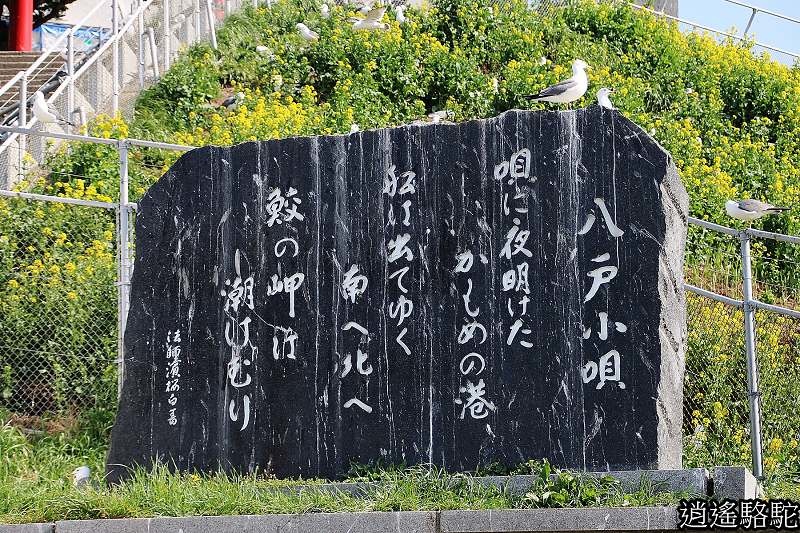 八戸小唄
唄に夜明けた
かもめの港
船は出てゆく
南へ北へ
鮫の岬は
潮けむり
法師濱桜白書
逍遙駱駝